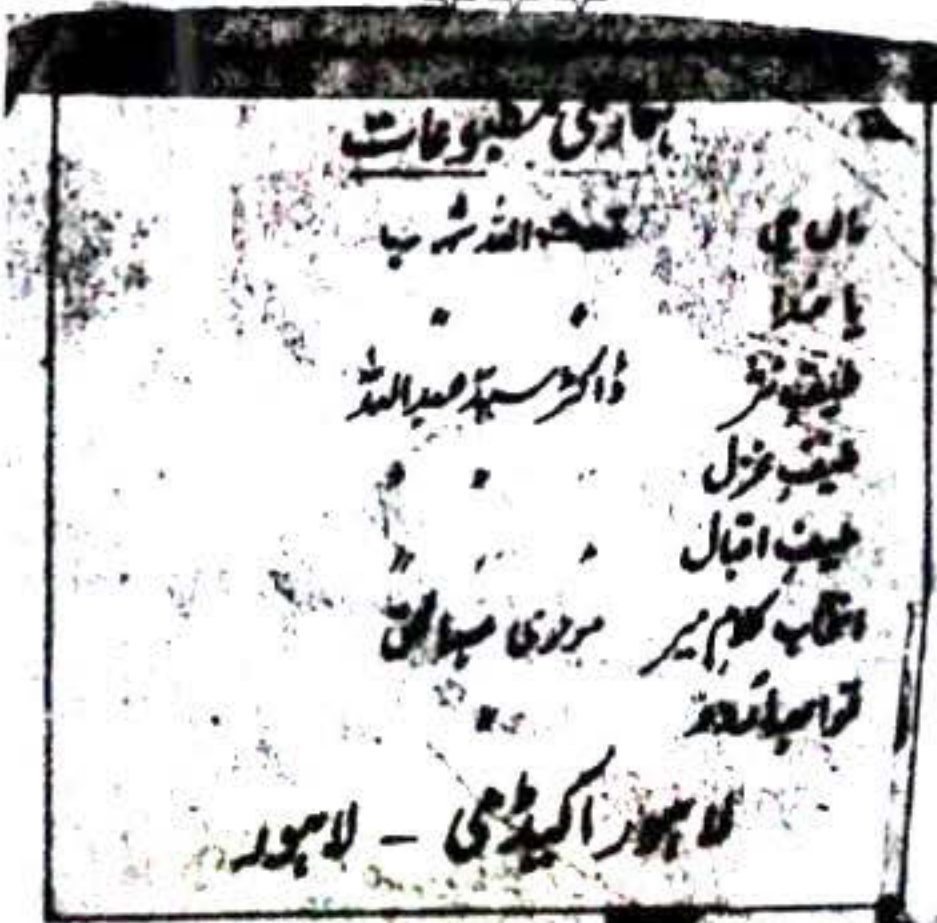 ہماری مطبوعات
ماں جی قدرت اللہ شہاب
یا خدا " "
طیف نثر ڈاکٹر سید عبداللہ
طیف غزل " "
طیف اقبال " "
انتخاب کلام میر مولوی عبدالحق
قواعد اردو "
لاہور اکیڈمی - لاہور